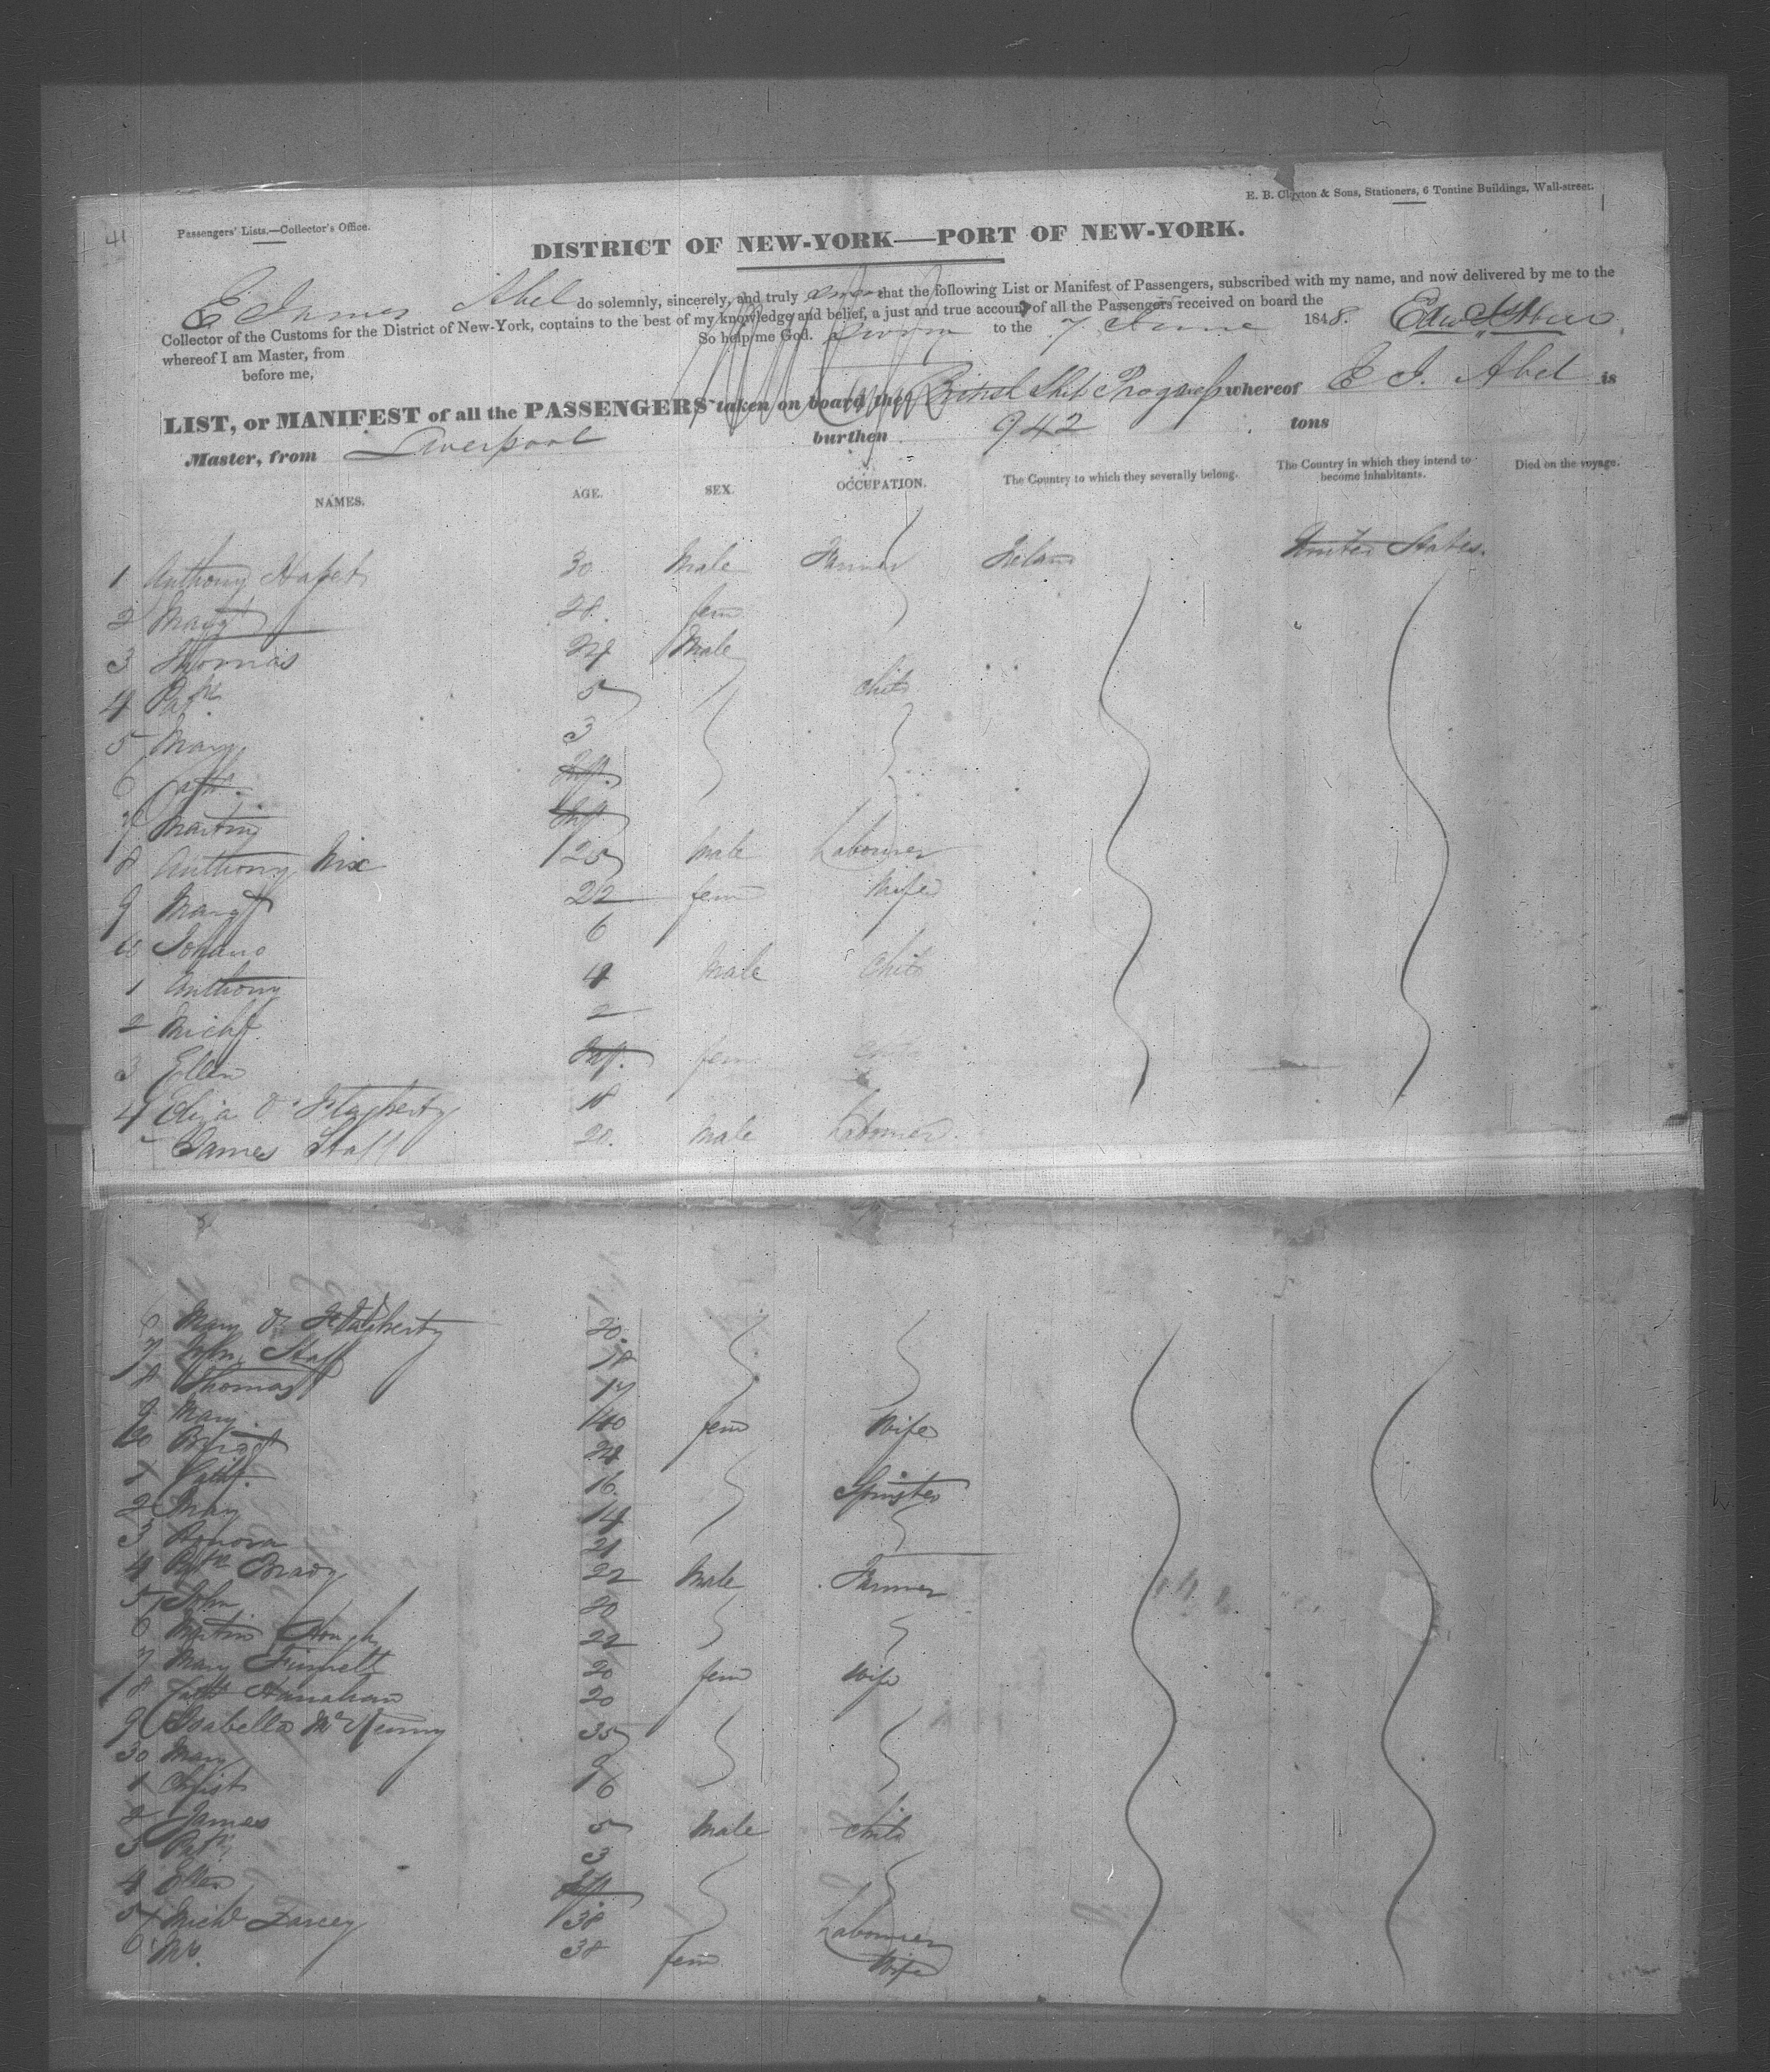 41
E. B. Clayton & Sons, Stationers, 6 Tontine Buildings, Wall-street.
Passengers' Lists.—Collector's Office.
DISTRICT OF NEW-YORK—PORT OF NEW-YORK.
E James Abel do solemnly, sincerely, and truly swear that the following List or Manifest of Passengers, subscribed with my name, and now delivered by me to the
Collector of the Customs for the District of New-York, contains to the best of my knowledge and belief, a just and true account of all the Passengers received on board the
whereof I am Master, from So help me God. Sworn to the 7 June 1848.
before me,
LIST, or MANIFEST of all the PASSENGERS taken on board the British Ship Progress whereof E J. Abel is
Master, from Liverpool burthen 942 tons
NAMES. AGE. SEX. OCCUPATION. The Country to which they severally belong. The Country in which they intend to become inhabitants. Died on the voyage.
1 Anthony 30 Male Farmer Ireland United States.
2 Margt 28. fem
3 Thomas 24 Male
4 Patk 5 Child
5 Mary 3
6 Cath. Inft.
7 Martin Inft
8 Anthony Nix 25 Male Labourer
9 Margt 22 fem Wife
10 6
1 Anthony 4 Male Child
2 Michl 2
3 Ellen Inft. fem
4 Eliza O'Flagherty 18
James Staff 20. Male Labourer
6 Mary O'Flagherty 20.
7 John Staff 18
8 Thomas 17
9 Mary 40 fem Wife
20 Bridgt 24
1 Cath. 16. Spinster
2 Mary 14
3 Honora 21
4 Patk Brady 22 Male Farmer
5 John 20
6 Martin 22
7 Mary 20 fem Wife
8 Cath Hanahan 20
9 Isabella 35
30 Mary 9
1 Christ 6
2 James 5 Male Child
3 Patk 3
4 Ellen Inft
5 Michl 38 Labourer
6 Mrs. 38 fem Wife